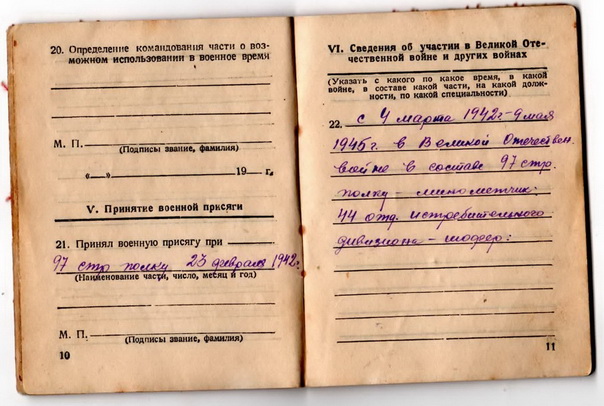 20. Определение командования части о воз-
можном использовании в военное время
М. П.
(Подписы звание, фамилия)
«     » 19     г.
V. Принятие военной присяги
21. Принял военную присягу при
97 стр полку 23 февраля 1942г.
(Наименование части, число, месяц и год)
М. П.
(Подписы звание, фамилия)
10
VI. Сведения об участии в Великой Оте-
чественной войне и других войнах
(Указать с какого по какое время, в какой
войне, в составе какой части, на какой долж-
ности, по какой специальности)
22. с 4 марта 1942г-9 мая
1945г. в Великой Отечествен.
войне в составе 97 стр.
полку - минометчик:
44 отд. истребительного
дивизиона - шофер:
11